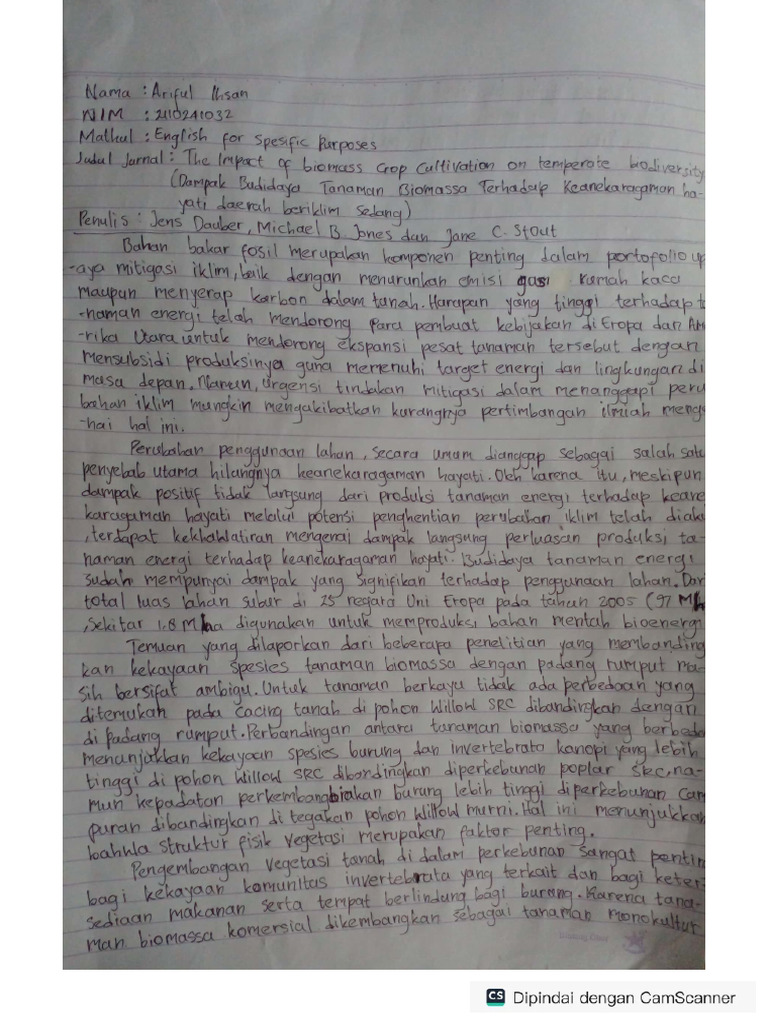 Nama : Ariful Ihsan
NIM : 2110241032
Matkul : English for Spesific Purposes
Judul Jurnal : The Impact of biomass crop cultivation on temperate biodiversity
(Dampak Budidaya Tanaman Biomassa Terhadap Keanekaragaman ha-
yati daerah beriklim sedang)
Penulis : Jens Dauber, Michael B. Jones dan Jane C. Stout
Bahan bakar fosil merupakan komponen penting dalam portofolio up
-aya mitigasi iklim, baik dengan menurunkan emisi gas rumah kaca
maupun menyerap karbon dalam tanah. Harapan yang tinggi terhadap t
-naman energi telah mendorong para pembuat kebijakan di Eropa dan Am
-rika Utara untuk mendorong ekspansi pesat tanaman tersebut dengan
mensubsidi produksinya guna memenuhi target energi dan lingkungan di
masa depan. Namun, urgensi tindakan mitigasi dalam menanggapi peru
bahan iklim mungkin mengakibatkan kurangnya pertimbangan ilmiah meng
-hai hal ini.
Perubahan penggunaan lahan, secara umum dianggap sebagai salah satu
penyebab utama hilangnya keanekaragaman hayati. Oleh karena itu, meskipun
dampak positif tidak langsung dari produksi tanaman energi terhadap keane
karagaman hayati melalui potensi penghentian perubahan iklim telah diaku
, terdapat kekhawatiran mengenai dampak langsung perluasan produksi ta-
naman energi terhadap keanekaragaman hayati. Budidaya tanaman energi
sudah mempunyai dampak yang signifikan terhadap penggunaan lahan. Dari
total luas lahan subur di 25 negara Uni Eropa pada tahun 2005 (97 Mh
, sekitar 1.8 Mha digunakan untuk memproduksi bahan mentah bioenergi
Temuan yang dilaporkan dari beberapa penelitian yang membanding
kan kekayaan spesies tanaman biomassa dengan padang rumput ma-
sih bersifat ambigu. Untuk tanaman berkayu tidak ada perbedaan yang
ditemukan pada cacing tanah di pohon Willow SRC dibandingkan dengan
di padang rumput. Perbandingan antara tanaman biomassa yang berbeda
menunjukkan kekayaan spesies burung dan invertebrata kanopi yang lebih
tinggi di pohon Willow SRC dibandingkan diperkebunan poplar SRC, na-
mun kepadatan perkembangbiakan burung lebih tinggi diperkebunan cam
puran dibandingkan di tegakan pohon Willow murni. Hal ini menunjukkan
bahwa struktur fisik vegetasi merupakan faktor penting.
Pengembangan vegetasi tanah di dalam perkebunan sangat pentin
bagi kekayaan komunitas invertebrata yang terkait dan bagi keter-
sediaan makanan serta tempat berlindung bagi burung. Karena tana-
man biomassa komersial dikembangkan sebagai tanaman monokultur
CS Dipindai dengan CamScanner